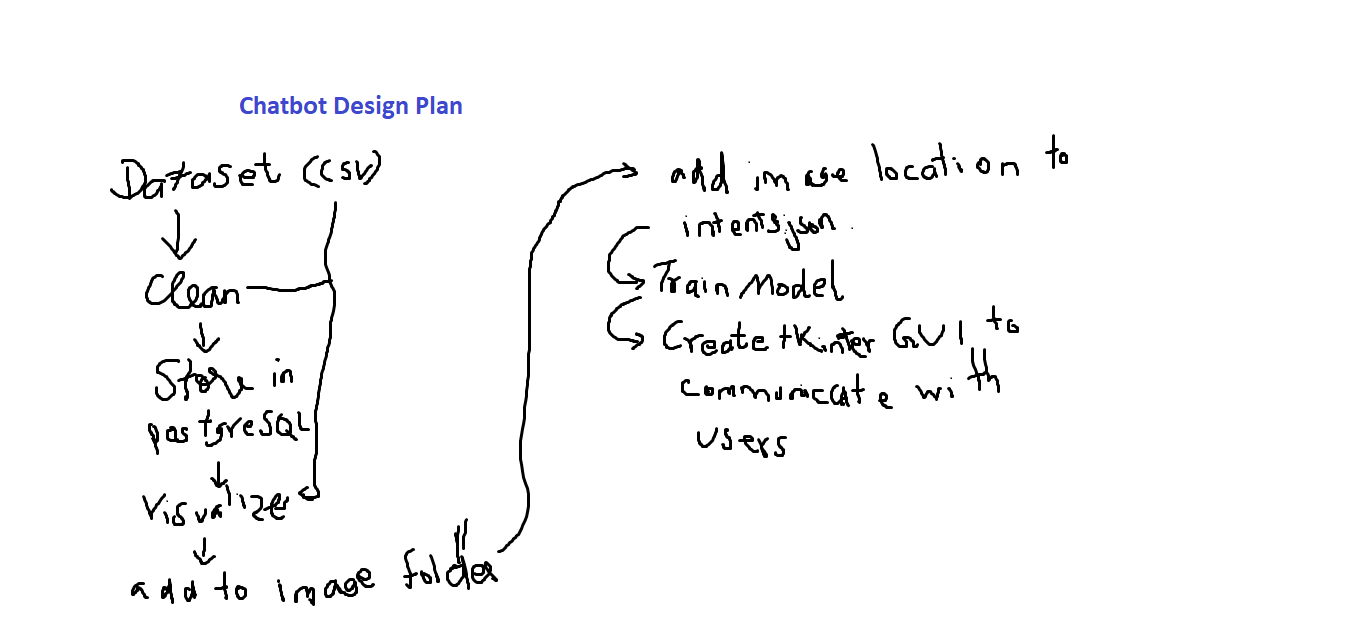 Chatbot Design Plan
Dataset (CSV)
Clean
Store in
postgreSQL
Visualizer
add to image folder
add image location to
intents.json
Train Model
Create tkinter GUI to
communicate with
users